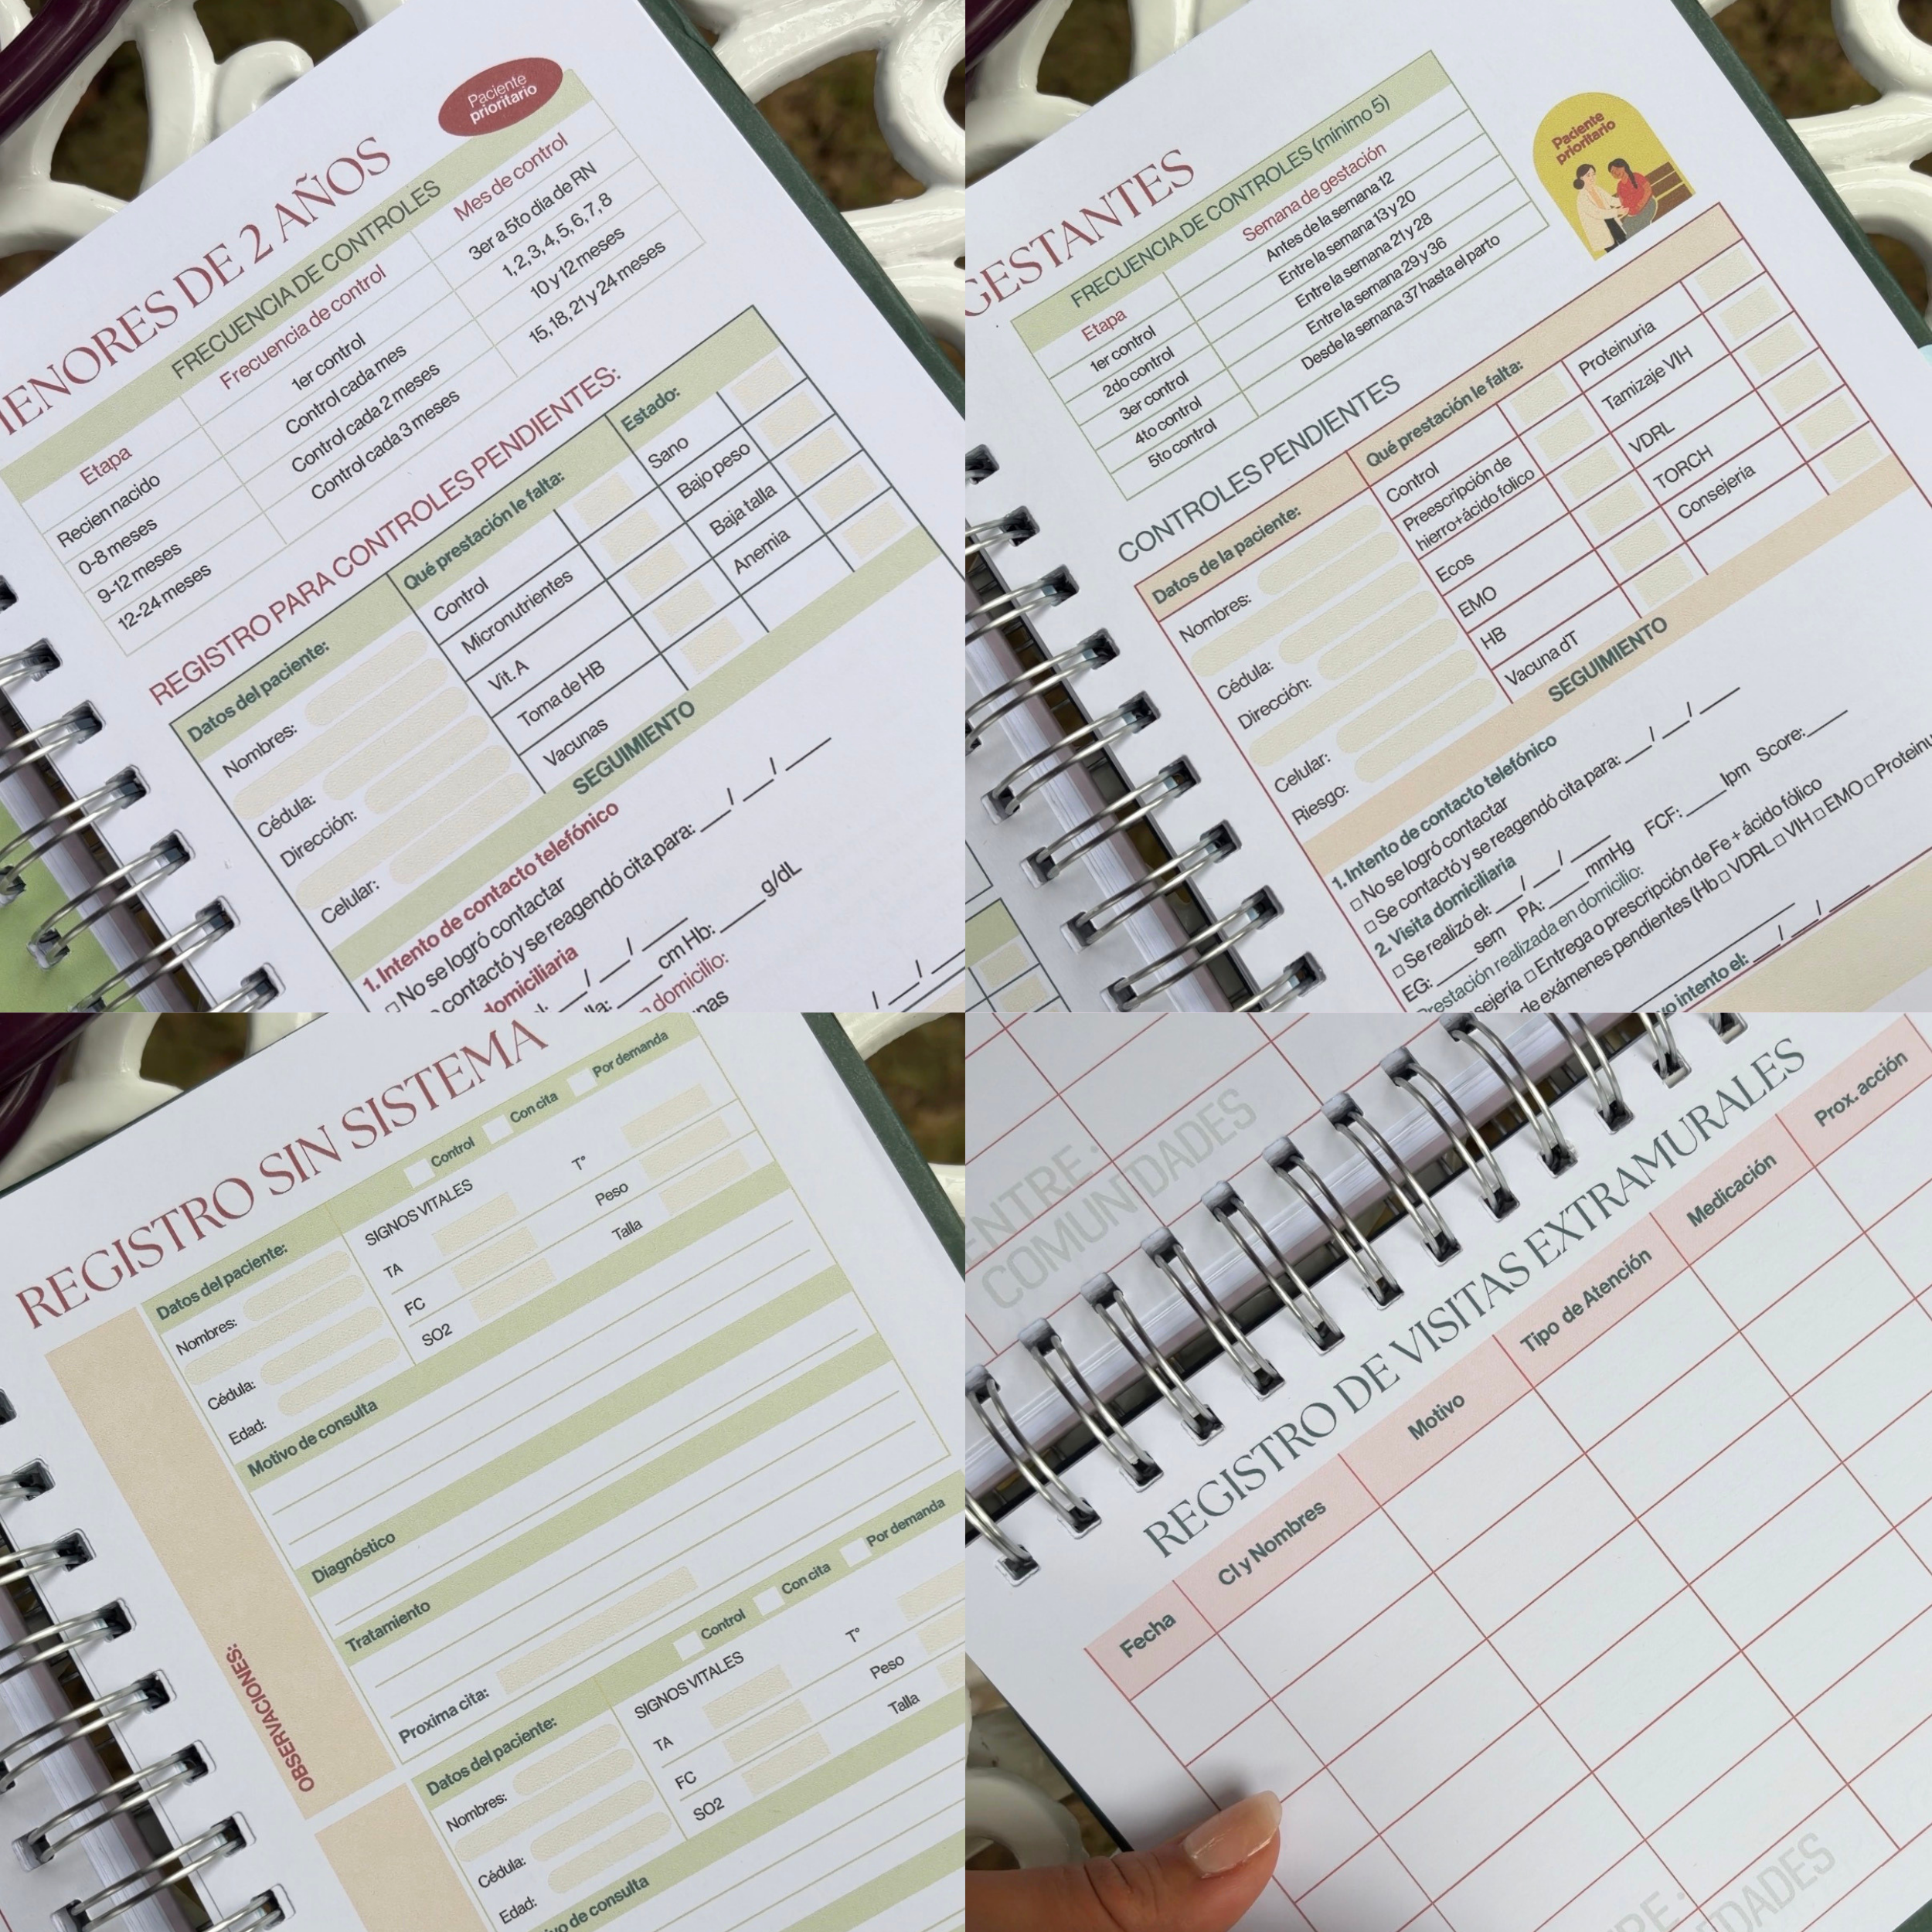 MENORES DE 2 AÑOS
Paciente
prioritario
FRECUENCIA DE CONTROLES
Etapa Frecuencia de control Mes de control
Recien nacido 1er control 3er a 5to dia de RN
0-8 meses Control cada mes 1, 2, 3, 4, 5, 6, 7, 8
9-12 meses Control cada 2 meses 10 y 12 meses
12-24 meses Control cada 3 meses 15, 18, 21 y 24 meses
REGISTRO PARA CONTROLES PENDIENTES:
Datos del paciente: Qué prestación le falta: Estado:
Nombres:
Cédula:
Dirección:
Celular:
Control
Micronutrientes
Vit. A
Toma de HB
Vacunas
Sano
Bajo peso
Baja talla
Anemia
SEGUIMIENTO
1. Intento de contacto telefónico
□ No se logró contactar
contactó y se reagendó cita para: ___/___/___
domiciliaria
el: ___/___/___
lla: ____ cm Hb: ____ g/dL
domicilio:
unas
GESTANTES
Paciente
prioritario
FRECUENCIA DE CONTROLES (mínimo 5)
Etapa Semana de gestación
1er control Antes de la semana 12
2do control Entre la semana 13 y 20
3er control Entre la semana 21 y 28
4to control Entre la semana 29 y 36
5to control Desde la semana 37 hasta el parto
CONTROLES PENDIENTES
Datos de la paciente: Qué prestación le falta:
Nombres:
Cédula:
Dirección:
Celular:
Riesgo:
Control
Preescripción de
hierro+ácido folico
Ecos
EMO
HB
Vacuna dT
Proteinuria
Tamizaje VIH
VDRL
TORCH
Consejería
SEGUIMIENTO
1. Intento de contacto telefónico
□ No se logró contactar
□ Se contactó y se reagendó cita para: ___/___/___
2. Visita domiciliaria
□ Se realizó el: ___/___/___
EG: ____ sem PA: ____ mmHg FCF: ____ lpm Score: ____
Prestación realizada en domicilio:
sejería □ Entrega o prescripción de Fe + ácido fólico
de exámenes pendientes (Hb □ VDRL □ VIH □ EMO □ Proteinu
vo intento el: ___/___/___
REGISTRO SIN SISTEMA
Control Con cita Por demanda
Datos del paciente:
Nombres:
Cédula:
Edad:
SIGNOS VITALES
TA
FC
SO2
T°
Peso
Talla
Motivo de consulta
Diagnóstico
Tratamiento
Proxima cita:
OBSERVACIONES:
Control Con cita Por demanda
Datos del paciente:
Nombres:
Cédula:
Edad:
SIGNOS VITALES
TA
FC
SO2
T°
Peso
Talla
vo de consulta
ENTRE:
COMUNIDADES
REGISTRO DE VISITAS EXTRAMURALES
Fecha CI y Nombres Motivo Tipo de Atención Medicación Prox. acción
TRE:
DADES